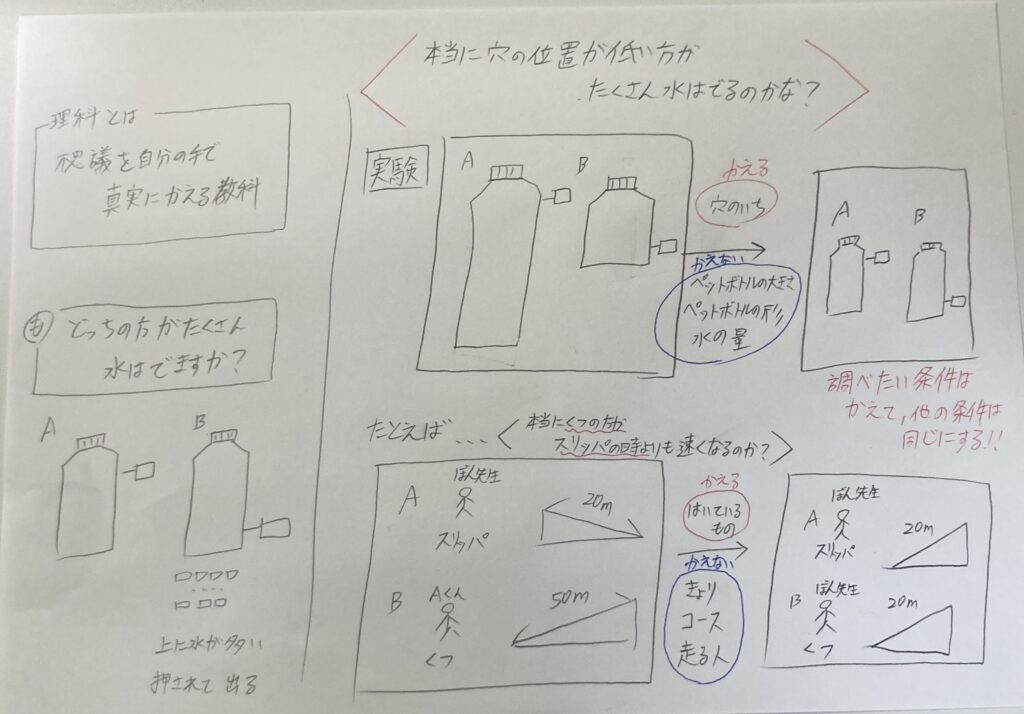 理科とは
不思議を自分の手で
真実にかえる教科
も
どっちの方がたくさん
水はでますか?
A
B
上に水が多い
押されて出る
本当に穴の位置が低い方が
たくさん水はでるのかな?
実験
A
B
かえる
穴のいち
かえない
ペットボトルの大きさ
ペットボトルの形
水の量
A
B
調べたい条件は
かえて,他の条件は
同じにする!!
たとえば...
本当にくつの方が
スリッパの時よりも速くなるのか?
ぼん先生
A
スリッパ
20m
B
Aくん
くつ
50m
かえる
はいている
もの
かえない
きょり
コース
走る人
ぼん先生
A
スリッパ
20m
B
ぼん先生
くつ
20m